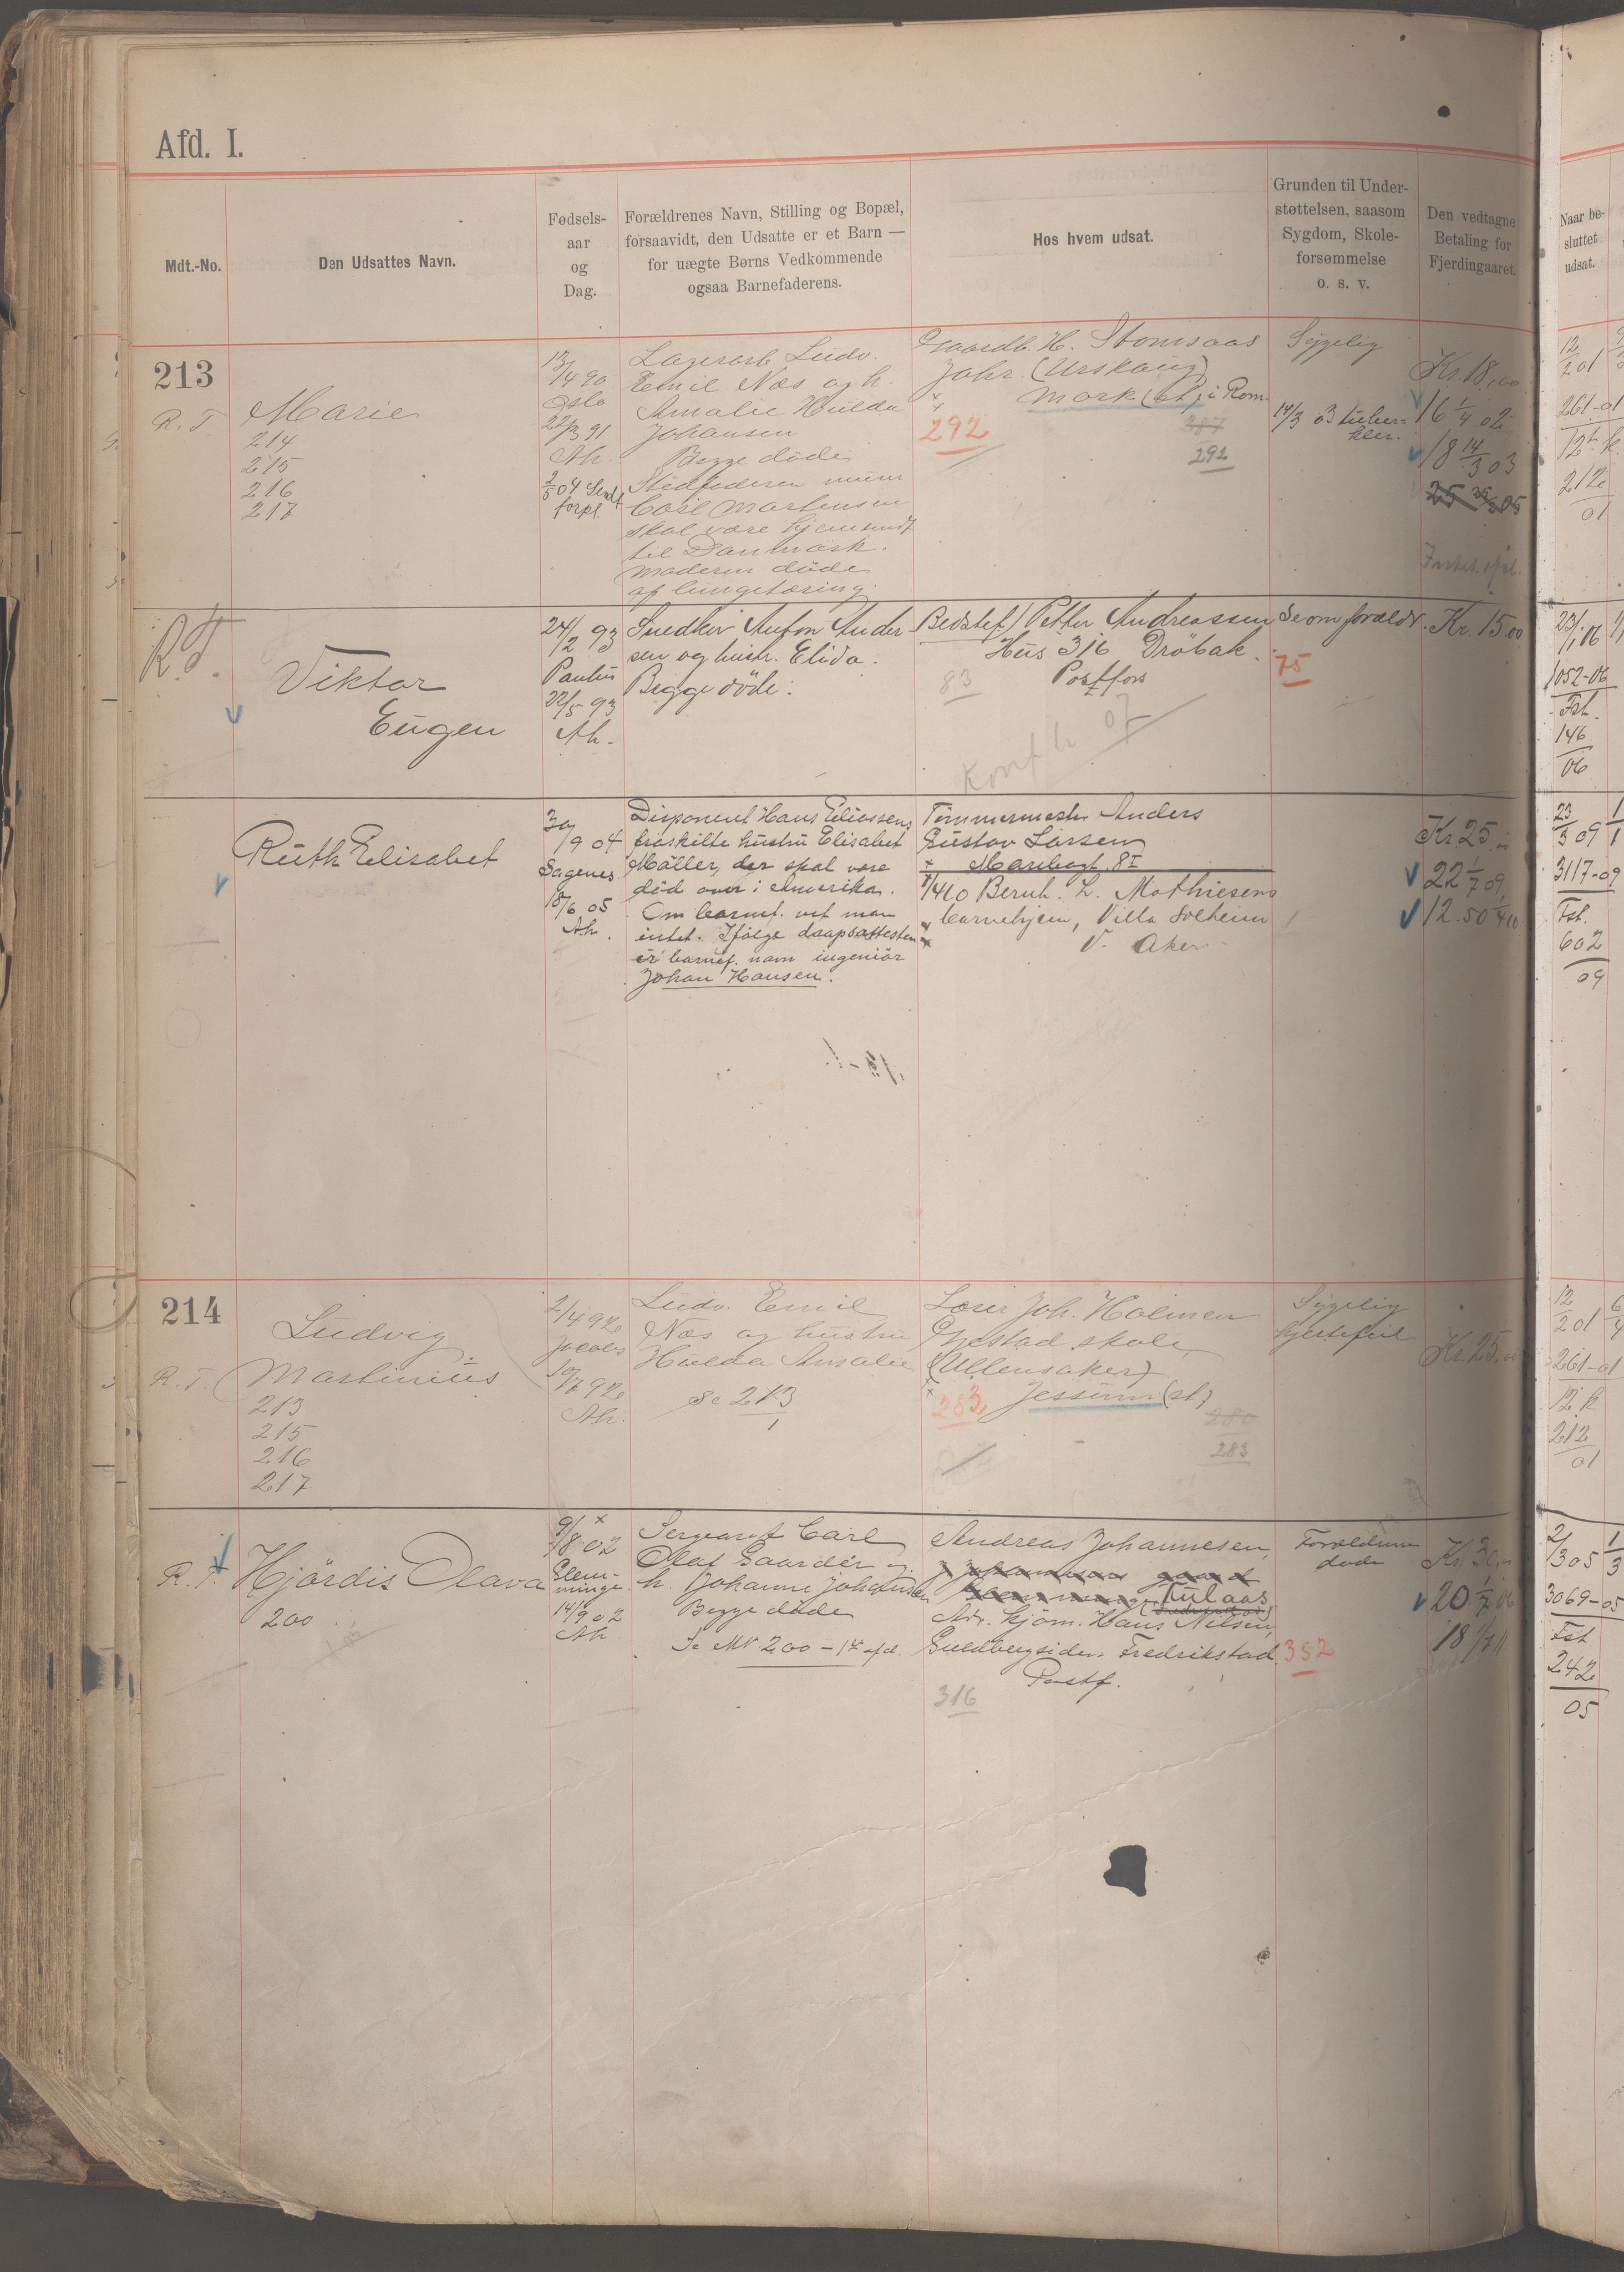 Afd. I.
Mdt.-No.
Den Udsattes Navn.
Fødsels-
aar
og
Dag.
Forældrenes Navn, Stilling og Bopæl,
forsaavidt, den Udsatte er et Barn —
for uægte Børns Vedkommende
ogsaa Barnefaderens.
Hos hvem udsat.
Grunden til Under-
støttelsen, saasom
Sygdom, Skole-
forsømmelse
o. s. v.
Den vedtagne
Betaling for
Fjerdingaaret.
Naar be-
sluttet
udsat.
213
R. T.
Marie
214
215
216
217
13/4 90
Oslo
22/3 91
Ah.
2/5 04 Sendt
forpl.
Lagerarb. Ludv.
Emil Næs og h.
Amalie Hulda
Johansen
Begge døde
Stedfaderen murer
Carl Martensen
skal være hjemsendt
til Danmark.
Moderen døde
af lungetæring.
Gaardb. H. Stomsaas
Johr. (Urskoug)
Mork (st) i Rom.
292
287
292
Sygelig
14/3 03 tuber-
kler.
Kr. 18,00
16 1/4 02
18 14/3 03
12/2 01
261-01
212
01
R. T.
Viktor
Eugen
24/2 93
Paulus
22/5 93
Ah.
Snedker Anton Ander-
sen og hustr. Elida.
Begge døde.
Bedstef. Petter Andreassen
Hus 316 Drøbak.
Postfors
83
Konf. h 07
Se om foreldr.
75
Kr. 15,00
1052-06
Fst.
146
06
Ruth Elisabet
30/9 04
Sagenes
18/6 05
Ah.
Disponent Hans Eliassens
fraskilte hustru Elisabet
Møller, der skal være
død over i Amerika.
Om barnef. vet man
intet. Ifølge daapsattesten
er barnef. navn ingeniør
Johan Hansen.
Tømmermester Anders
Gustav Larsen
Maribogt. 8 I
1/4 10 Bernh. L. Mathiesens
barnehjem, Villa Solheim
V. Aker
Kr. 25
22 1/7 09
12.50 1/4 10
23/3 09
3117-09
Fst.
602
09
214
R. T.
Ludvig
Martinius
213
215
216
217
2/4 92
Jacobs
10/7 92
Ah.
Ludv. Emil
Næs og hustru
Hulda Amalie
Se 213
1
Lærer Joh. Holmen
Gjestad skole
(Ullensaker)
Jessum (st)
283
280
283
Sygelig
hjertefeil
Kr. 25,00
12/2 01
261-01
212
01
R. T.
Hjördis Olava
200
9/8 02
Glem-
minge
14/9 02
Ah.
Sergeant Carl
Olaf Gaarder og
h. Johanne Johansen
Begge døde
Se Mt 200 - 1ste afd.
Andreas Johannesen,
Adr. Skjøm. Hans Nilsen,
Guldbergsiden Fredrikstad
Postf.
316
Forældrene
døde
352
Kr. 30
20 1/7 06
3069-05
Fst.
242
05